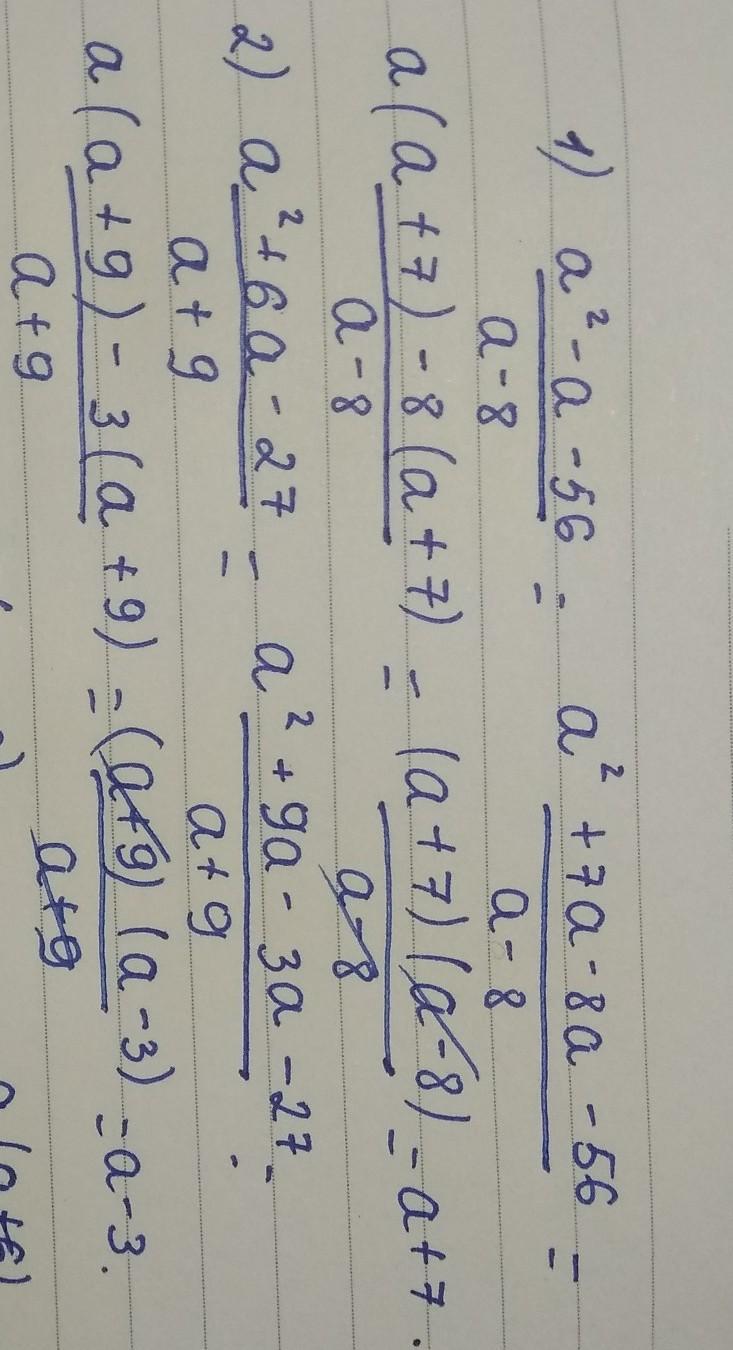 1) a² - a - 56 / a - 8 = a² + 7a - 8a - 56 / a - 8 =
a(a + 7) - 8(a + 7) / a - 8 = (a + 7)(a - 8) / a - 8 = a + 7.
2) a² + 6a - 27 / a + 9 = a² + 9a - 3a - 27 / a + 9 =
a(a + 9) - 3(a + 9) / a + 9 = (a + 9)(a - 3) / a + 9 = a - 3.